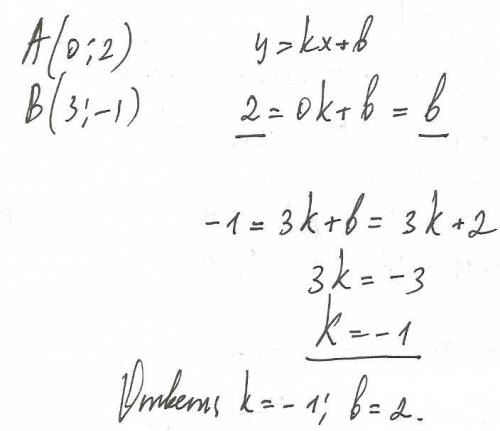 A(0;2) y=kx+b
B(3;-1) 2=0k+b=b
-1=3k+b=3k+2
3k=-3
k=-1
Ответ: k=-1; b=2.